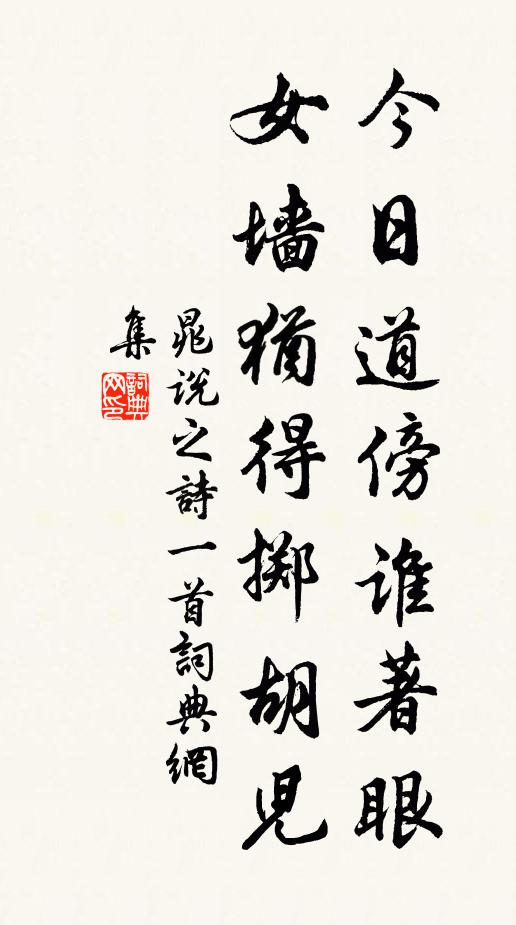 今日道傍谁著眼
女墙犹得掷胡児
晁说之詩一首詞典網
集
詞典网印